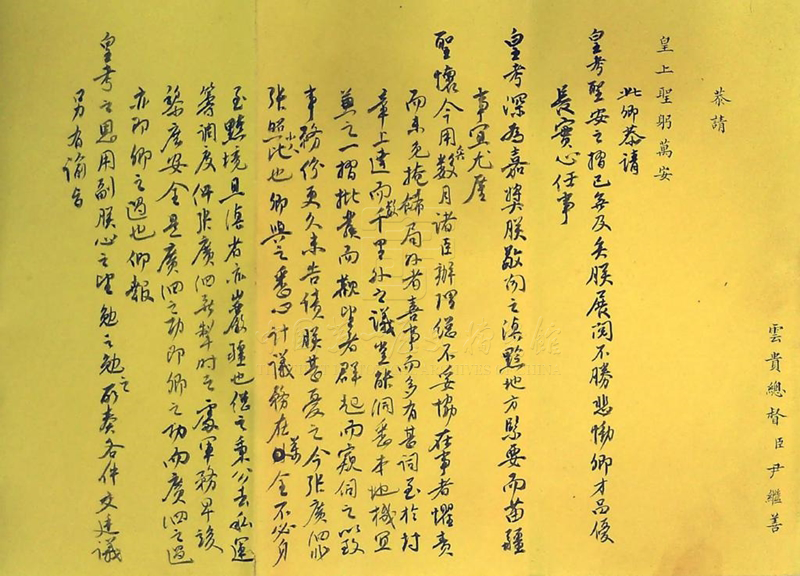 雲貴總督臣尹繼善
恭請
皇上聖躬萬安
此卿恭請
皇考聖安之摺已無及矣朕展閱不勝悲慟卿才品優
長實心任事
皇考深為嘉獎朕敬聞之滇黔地方緊要而苗疆
事宜尤廑
聖懷今用兵數月諸臣辦理總不妥協在事者懼責
而未免掩飾局外者喜事而多有甚詞至於封
章上達而數千里外之議豈能洞悉本地機宜
兼之一摺批發而觀望者群起而窺伺之以致
事務紛更久未告績朕甚憂之今張廣泗非
張照比也卿與之悉心計議務在萬全不必身
至黔境且滇省亦巖疆也秉公去私運
籌調度俾張廣泗無掣肘之處軍務早竣
黎庶安全是廣泗之功即卿之功而廣泗之過
亦即卿之過也仰報
皇考之恩用副朕心之望勉之勉之所奏各件交廷議
另有諭旨